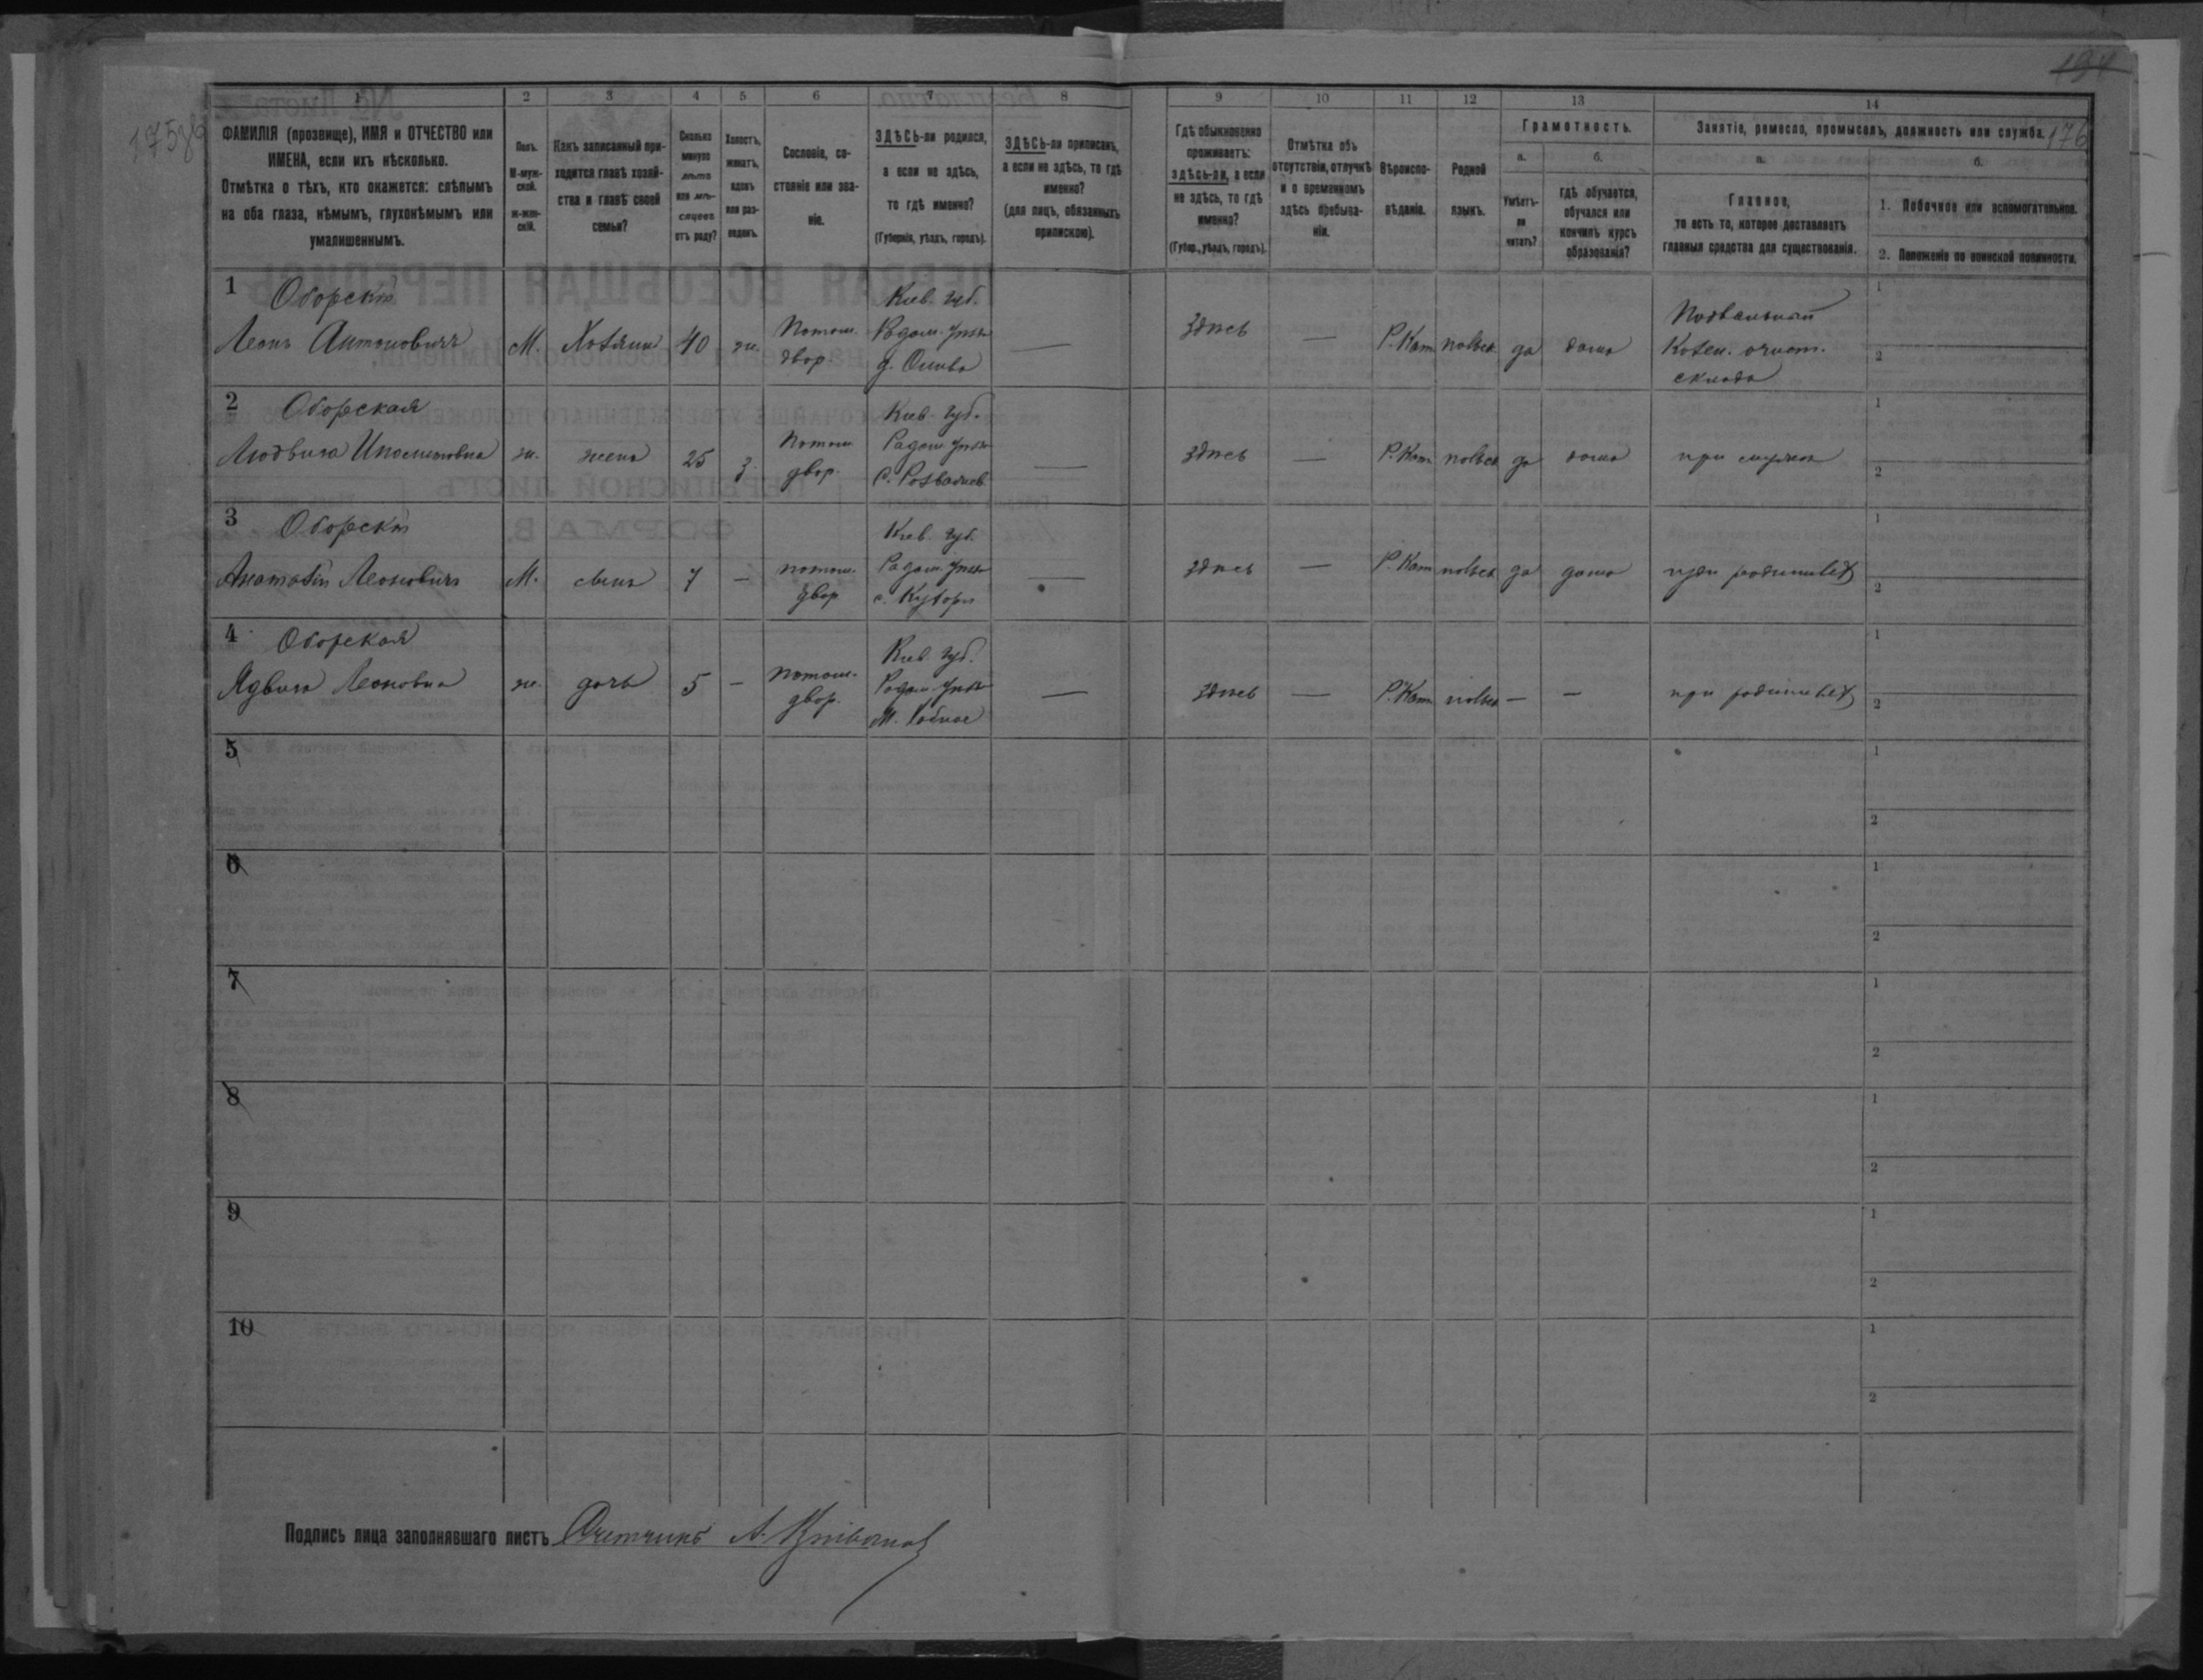 134
176
1 2 3 4 5 6 7 8 9 10 11 12 13 14
ФАМИЛІЯ (прозвище), ИМЯ и ОТЧЕСТВО или
ИМЕНА, если ихъ нѣсколько.
Отмѣтка о тѣхъ, кто окажется: слѣпымъ
на оба глаза, нѣмымъ, глухонѣмымъ или
умалишеннымъ.
Полъ.
М-муж-
ской.
ж-жен-
скій.
Какъ записанный при-
ходится главѣ хозяй-
ства и главѣ своей
семьи?
Сколько
минуло
лѣтъ
или мѣ-
сяцевъ
отъ роду?
Холостъ,
женатъ,
вдовъ
или раз-
веденъ.
Сословіе, со-
стояніе или зва-
ніе.
ЗДѢСЬ-ли родился,
а если не здѣсь,
то гдѣ именно?
(Губернія, уѣздъ, городъ).
ЗДѢСЬ-ли приписанъ,
а если не здѣсь, то гдѣ
именно?
(для лицъ, обязанныхъ
припискою).
Гдѣ обыкновенно
проживаетъ:
здѣсь-ли, а если
не здѣсь, то гдѣ
именно?
(Губер., уѣздъ, городъ).
Отмѣтка объ
отсутствіи, отлучкѣ
и о временномъ
здѣсь пребыва-
ніи.
Вѣроиспо-
вѣданіе.
Родной
языкъ.
Грамотность.
а.
Умѣетъ-
ли
читать?
б.
гдѣ обучается,
обучался или
кончилъ курсъ
образованія?
Занятіе, ремесло, промыселъ, должность или служба.
а.
Главное,
то есть то, которое доставляетъ
главныя средства для существованія.
б.
1. Побочное или вспомогательное.
2. Положеніе по воинской повинности.
1 Оборскій
Леонъ Антоновичъ М. Хозяинъ 40 ж. Потом. двор. Кіев. губ.
Радом. уѣзда
— здѣсь — Р. Кат. польск. да дома Подвальный
Казен. очист.
склада
1
2
2 Оборская
Людвига ж. жена 25 з. Потом. двор. Кіев. губ.
Радом. уѣзда
— здѣсь — Р. Кат. польск. да дома при мужѣ
1
2
3 Оборскій
Анатолій Леоновичъ М. сынъ 7 — потом. двор. Кіев. губ.
Радом. уѣзда
— здѣсь — Р. Кат. польск. да дома при родителях
1
2
4 Оборская
Ядвига Леоновна ж. дочь 5 — потом. двор. Кіев. губ.
Радом. уѣзда
— здѣсь — Р. Кат. польск. — — при родителях
1
2
5
1
2
6
1
2
7
1
2
8
1
2
9
1
2
10
1
2
Подпись лица заполнявшаго листъ Счетчикъ А.